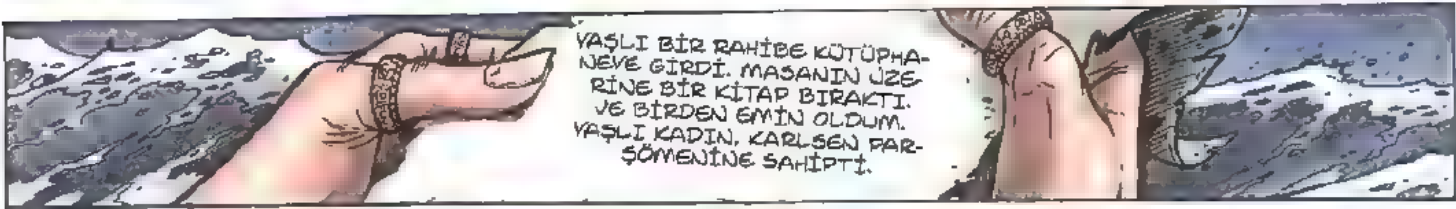 YAŞLI BİR RAHİBE KÜTÜPHA-
NEYE GİRDİ. MASANIN ÜZE-
RİNE BİR KİTAP BIRAKTI.
VE BİRDEN EMİN OLDUM.
YAŞLI KADIN, KARLSEN PAR-
ŞÖMENİNE SAHİPTİ.